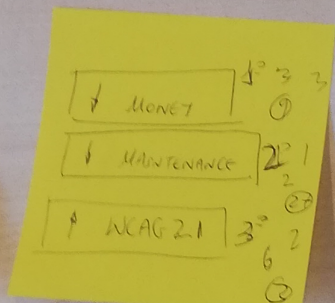 ↓ MONEY 1º 3 3
↓ MAINTENANCE 2º 1
2
27
↑ WCAG 2.1 3º 2
6